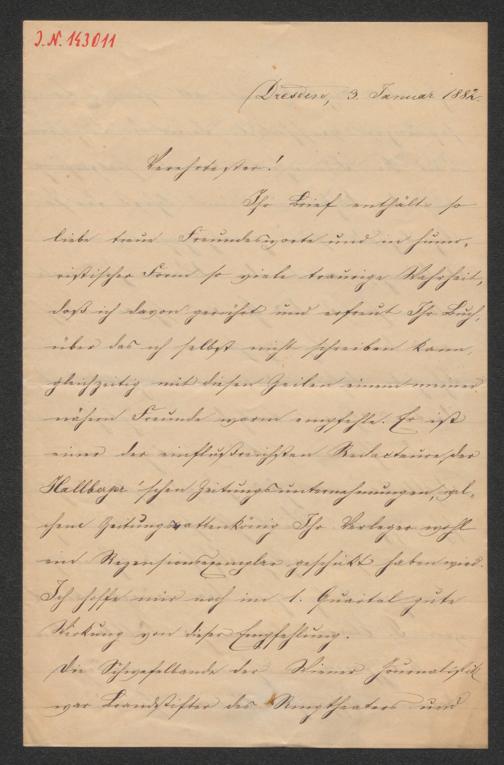 J.N. 143011
Dresden, 3. Januar 1882.
Verehrtester!
Ihr Brief enthält so
liebe treue Freundesworte und in humo-
ristischer Form so viele traurige Wahrheit,
daß ich davon gerührt und erfreut Ihr Buch,
über das ich selbst nicht schreiben kann,
gleichzeitig mit diesen Zeilen einem meiner
nähern Freunde warm empfehle. Er ist
einer der einflußreichsten Redacteure der
Hallberger'schen Zeitungsunternehmungen, wel-
chem Zeitungsrattenkönig Ihr Verleger wohl
ein Rezensionsexemplar geschickt haben wird.
Ich hoffe mir noch im 1. Quartal gute
Wirkung von dieser Empfehlung.
Die Schwefelbande der Wiener Journalistik
war Brandstifter des Ringtheaters und